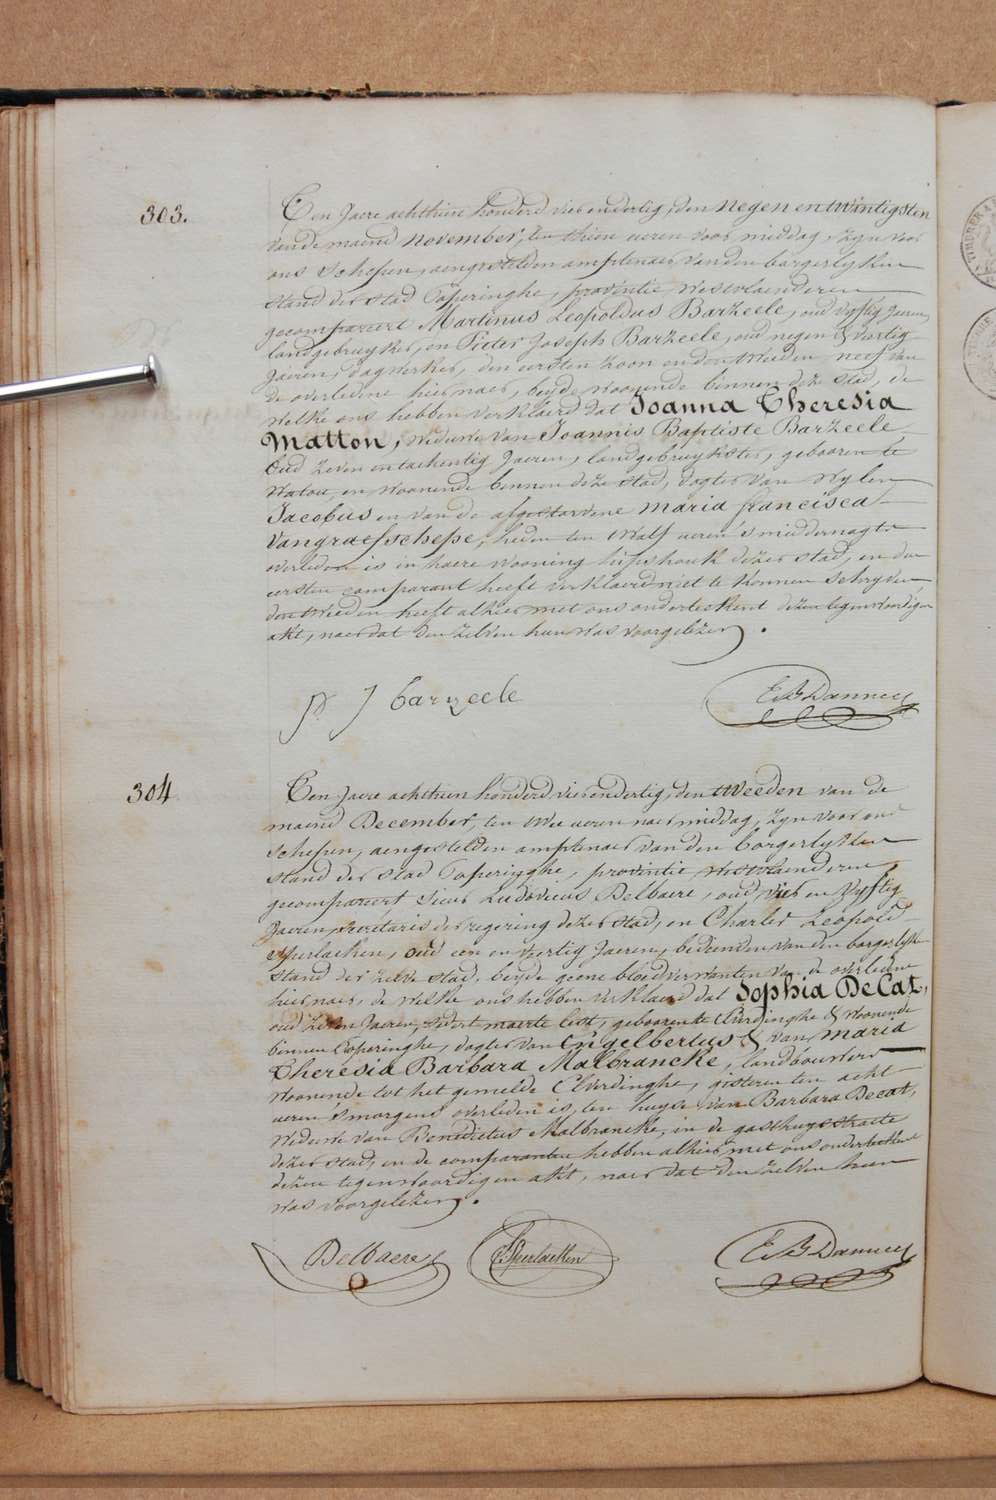 303.
Ten Jaere achthien honderd vierendertig, den negen en twintigsten
van de maend november, ten thien ueren voor middag, zijn voor
ons Schepen, aengestelden amptenaer van den borgerlyken
stand der stad Poperinghe, provintie Westvlaenderen
gecompareert Martinus Leopoldus Barzeele, oud vyftig Jaeren,
landgebruyker, en Pieter Joseph Barzeele, oud negen & veertig
Jaeren, dagwerker, den eersten zoon en den tweeden neef van
de overledene hier naer, beyde woonende binnen deze stad, de
welke ons hebben verklaerd dat Joanna Theresia
Matton, weduwe van Joannis Baptiste Barzeele
oud zeven en tachentig Jaeren, landgebruykster, gebooren te
Watou, en woonende binnen deze stad, dogter van wylen
Jacobus en van de afgestorvene Maria francisca
Vangraefschepe, heden ten twalf ueren 's middernagts
overleden is in haere wooning hipshoek dezer stad, en den
eersten comparant heeft verklaerd niet te konnen schryven
den tweeden heeft alhier met ons onderteekent dezen tegenwoordigen
akt, naer dat den zelven hun was voorgelezen.
p J barzeele
304
Ten Jaere achthien honderd vierendertig, den tweeden van de
maend December, ten twee ueren naer middag, zyn voor ons
schepen, aengestelden amptenaer van den borgerlyken
stand der stad Poperinghe, provintie Westvlaenderen
gecompareert sieur Ludovicus Delbaere, oud vier en vyftig
Jaeren, secretaris der regering dezer stad, en Charles Leopold
Sperlaeken, oud een en veertig Jaeren, bedienden van den borgerlyken
stand der zelve stad, beyde geene bloedverwanten van de overledene
hier naer, de welke ons hebben verklaerd dat Sophia De Cat,
oud zeven Jaeren, sedert maerte lest, geboren te Elverdinghe & woonende
binnen Poperinghe, dogter van Engelbertus & van Maria
Theresia Barbara Malbrancke, landbouwers
woonende tot het gemelde Elverdinghe, gisteren ten acht
ueren 's morgens overleden is, ten huyse van Barbara Decat,
weduwe van Benedictus Malbrancke, in de gasthuysstraete
dezer stad, en de comparanten hebben alhier met ons onderteekent
dezen tegenwoordigen akt, naer dat den zelven hun
was voorgelezen.
Delbaere Sperlaeken